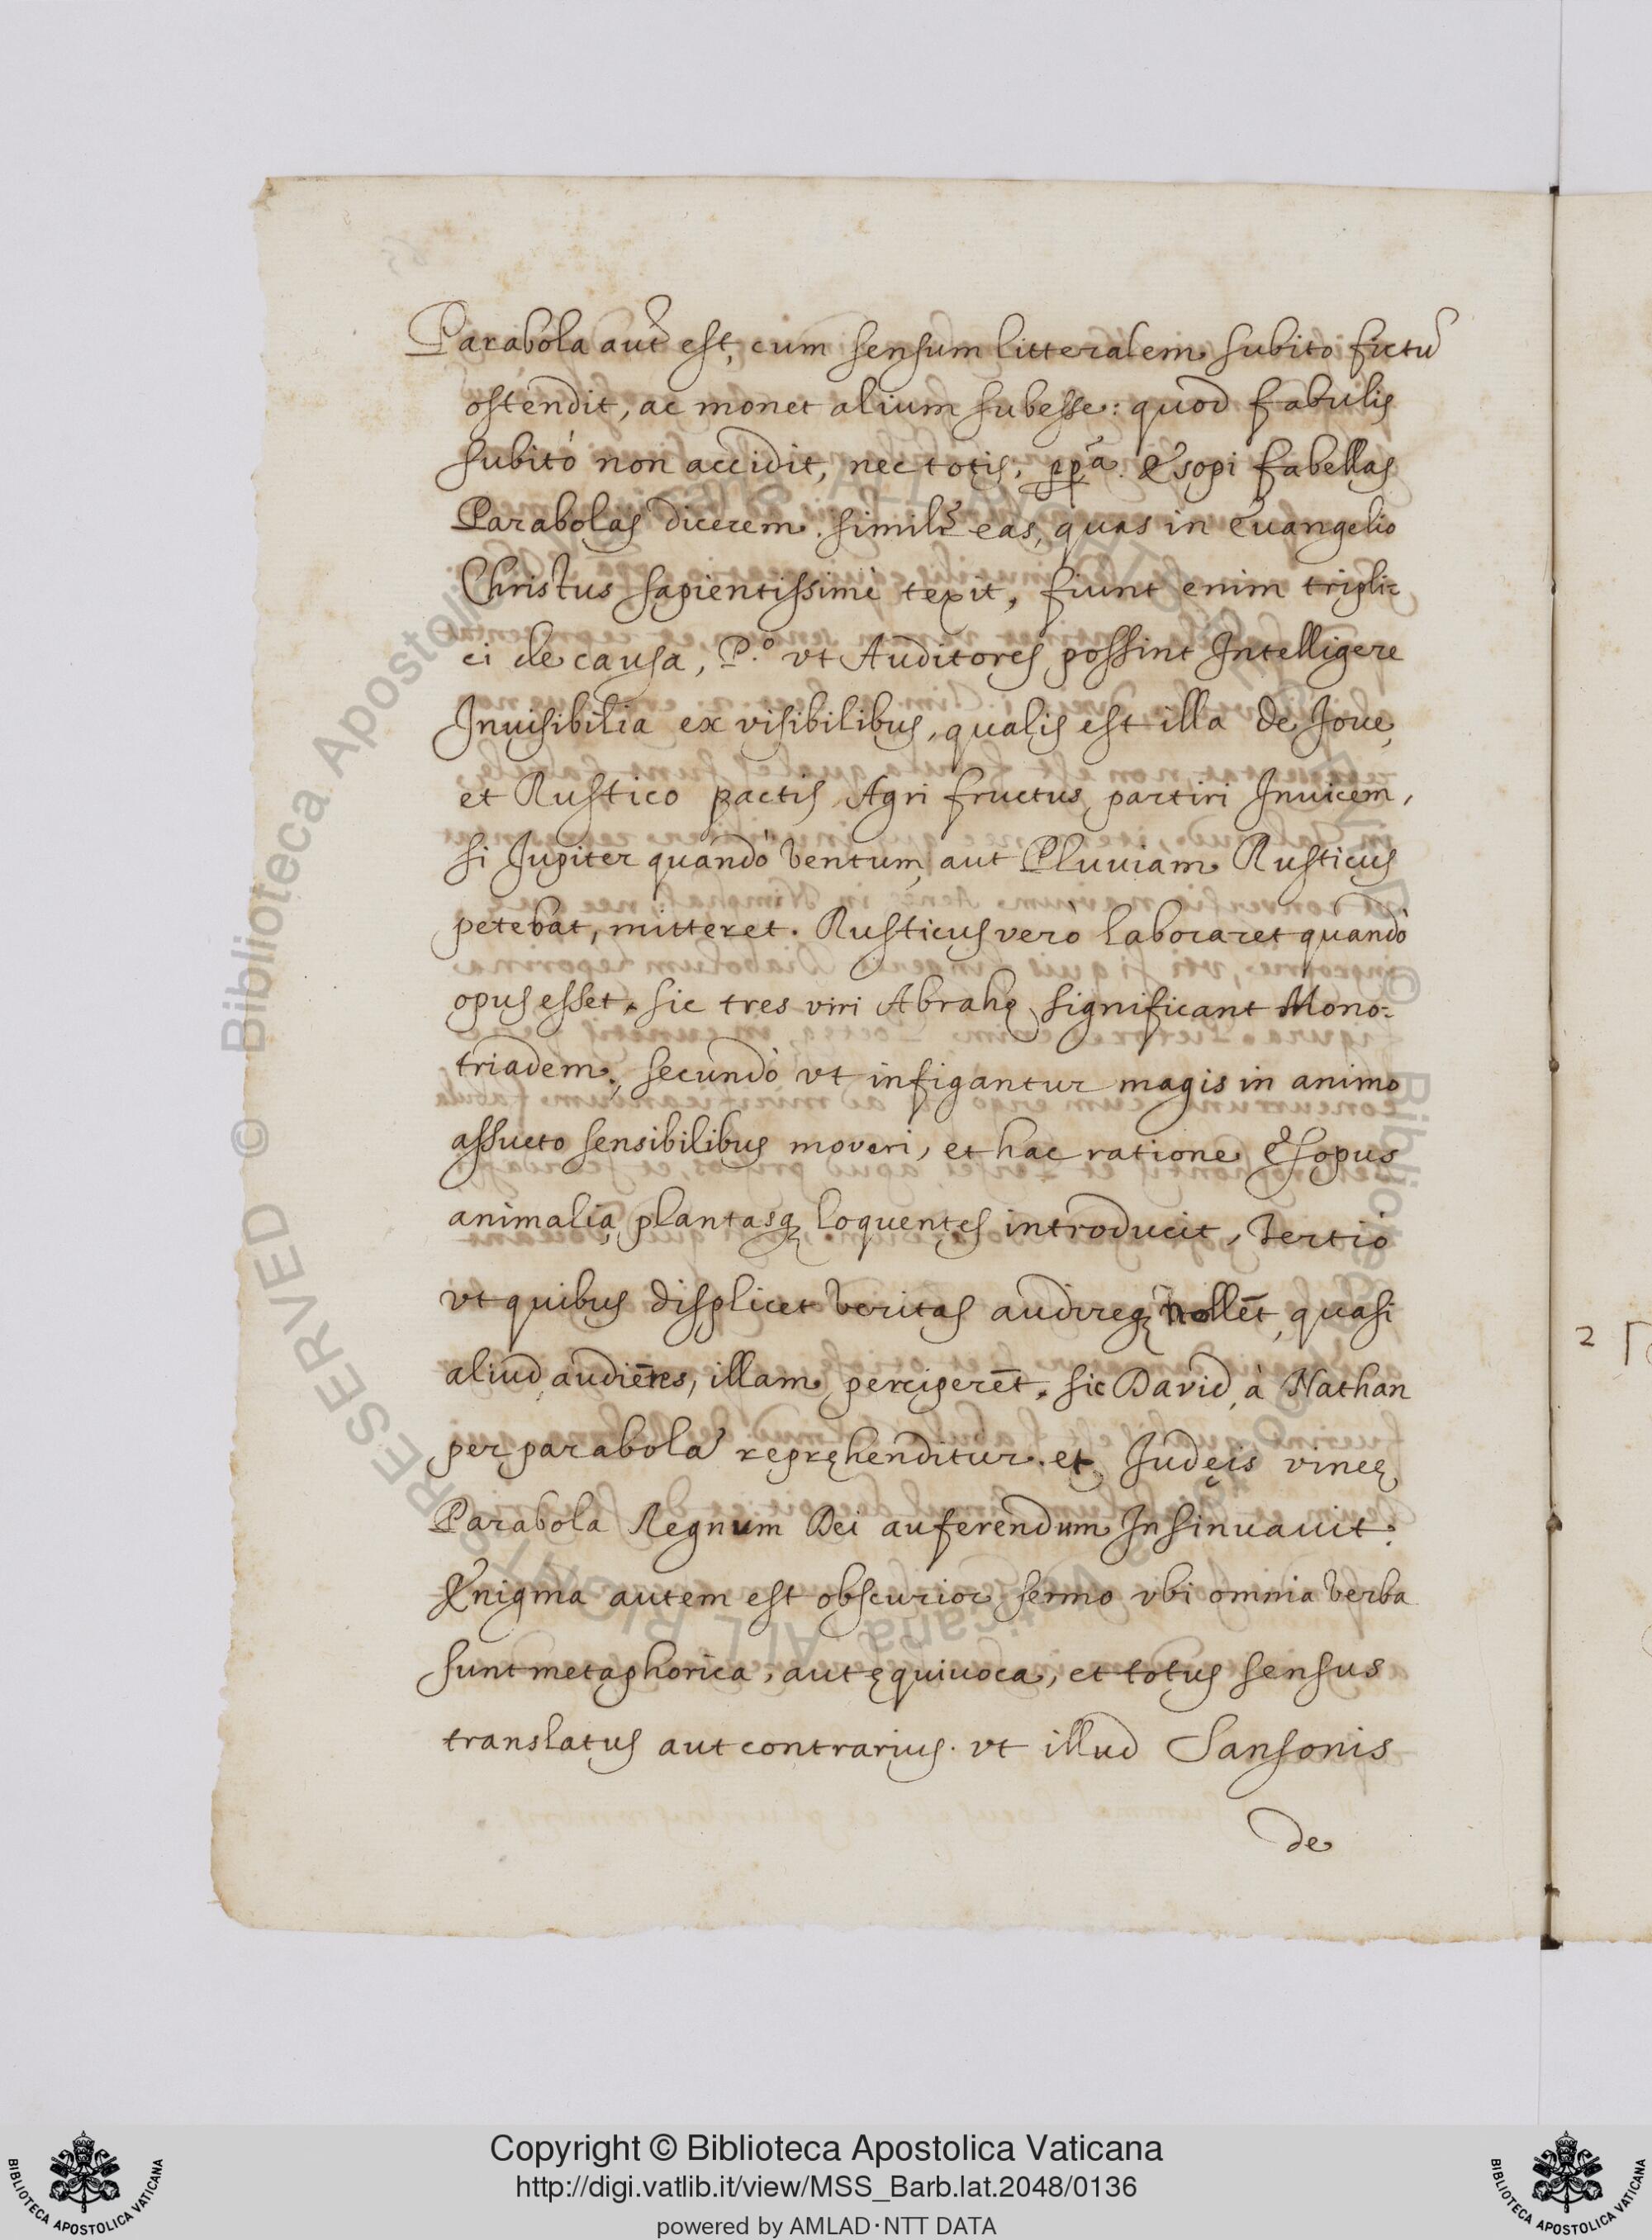 Parabola aut̃ est, cum sensum litteralem subito fictũ
ostendit, ac monet alium subesse: quod fabulis
subitò non accidit, nec totis, Ęsopi fabellas
Parabolas dicerem. similr̃ eas, quas in Euangelio
Christus sapientissimè texit, fiunt enim tripli-
ci de causa, P.º vt Auditores possint Intelligere
Inuisibilia ex visibilibus, qualis est illa de Ioue,
et Rustico pactis Agri fructus partiri Inuicem,
si Iupiter quandò ventum, aut Pluuiam Rusticus
petebat, mitteret. Rusticus verò laboraret quandò
opus esset, sic tres viri Abrahę significant Mono-
triadem; secundò vt infigantur magis in animo
assueto sensibilibus moveri, et hac ratione Ęsopus
animalia, plantasq; loquentes introducit, tertiò
vt quibus displicet veritas audireq; nollẽt, quasi
aliud audiẽtes, illam perciperẽt, sic David à Nathan
per parabolã repręhenditur. et Iudęis vineę
Parabola Regnum Dei auferendum Insinuauit.
Ęnigma autem est obscurior sermo vbi omnia verba
sunt metaphorica, aut ęquiuoca, et totus sensus
translatus aut contrarius. vt illud Sansonis
de
2
© Biblioteca Apostolica Vaticana ALL RIGHTS RESERVED
Copyright © Biblioteca Apostolica Vaticana
http://digi.vatlib.it/view/MSS_Barb.lat.2048/0136
powered by AMLAD·NTT DATA
BIBLIOTECA APOSTOLICA VATICANA
BIBLIOTECA APOSTOLICA VATICANA